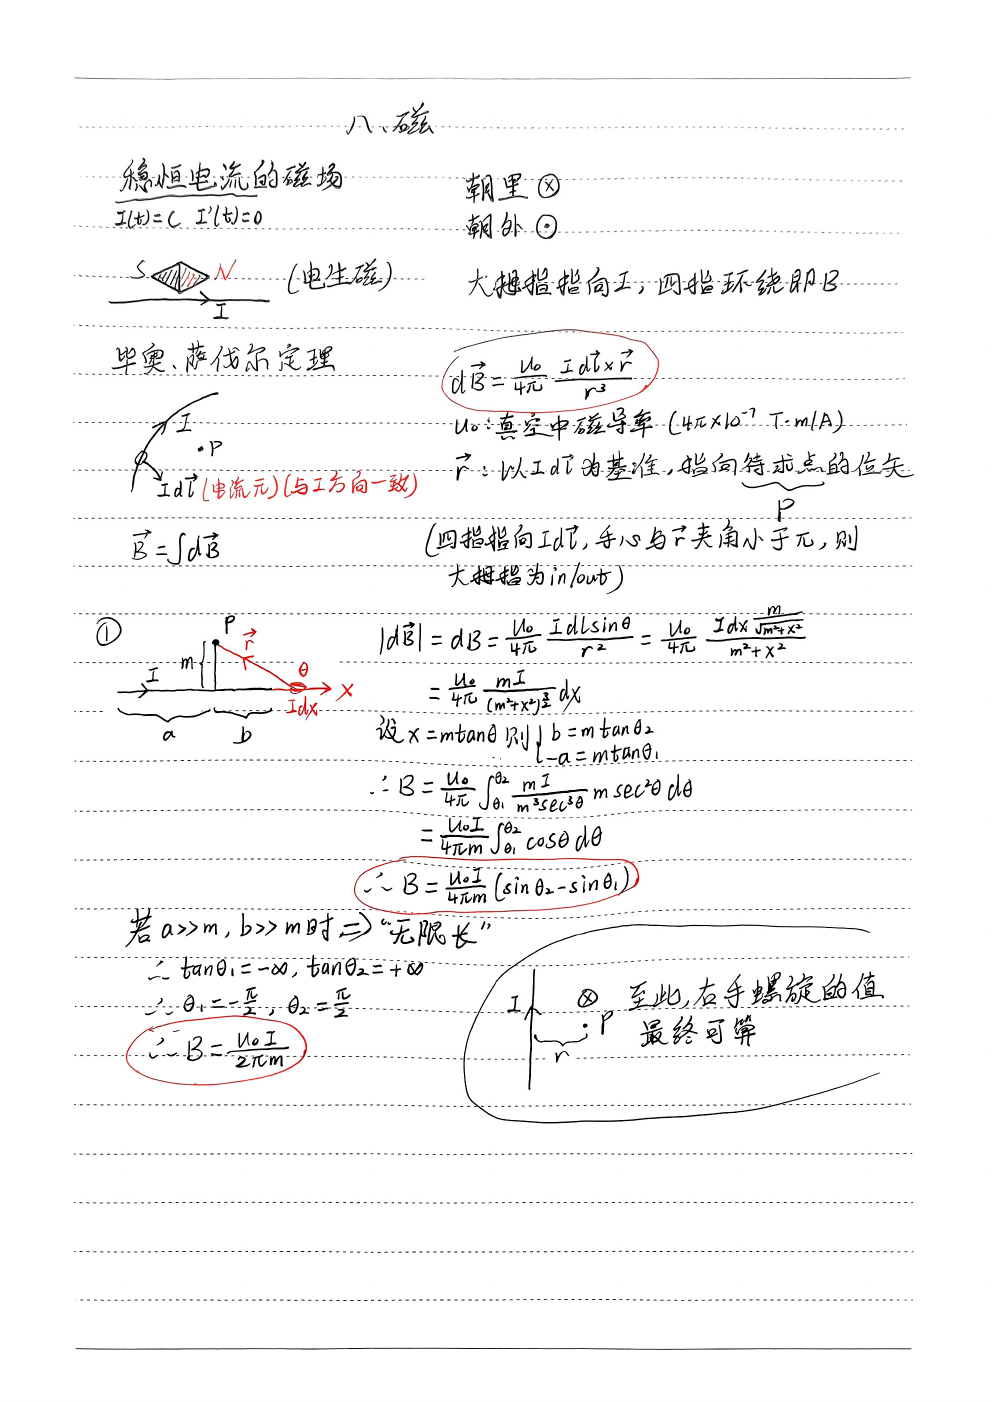 八、磁
稳恒电流的磁场
I(t)=C I'(t)=0
朝里 ⊗
朝外 ⊙
S N (电生磁)
I
大拇指指向I，四指环绕即B
毕奥、萨伐尔定理
dB⃗ = u₀/4π Idl⃗×r⃗/r³
u₀：真空中磁导率 (4π×10⁻⁷ T·m/A)
r⃗：以Idl⃗为基准，指向待求点的位矢
P
I
·P
Idl⃗ (电流元)(与I方向一致)
B⃗=∫dB⃗
(四指指向Idl⃗，手心与r⃗夹角小于π，则
大拇指为in/out)
①
P
r⃗
m
I
θ
x
Idx
a b
|dB⃗| = dB = u₀/4π Idlsinθ/r² = u₀/4π Idx m/√(m²+x²)/(m²+x²)
= u₀/4π mI/(m²+x²)^(3/2) dx
设 x=mtanθ 则 { b=mtanθ₂
-a=mtanθ₁
∴ B = u₀/4π ∫θ₁^θ₂ mI/(m³sec³θ) m sec²θ dθ
= u₀I/4πm ∫θ₁^θ₂ cosθ dθ
∴ B = u₀I/4πm (sinθ₂-sinθ₁)
若 a>>m, b>>m时, ⇒ “无限长”
∴ tanθ₁=-∞, tanθ₂=+∞
∴ θ₁=-π/2, θ₂=π/2
∴ B = u₀I/2πm
I
⊗
·P
r
至此，右手螺旋的值
最终可算